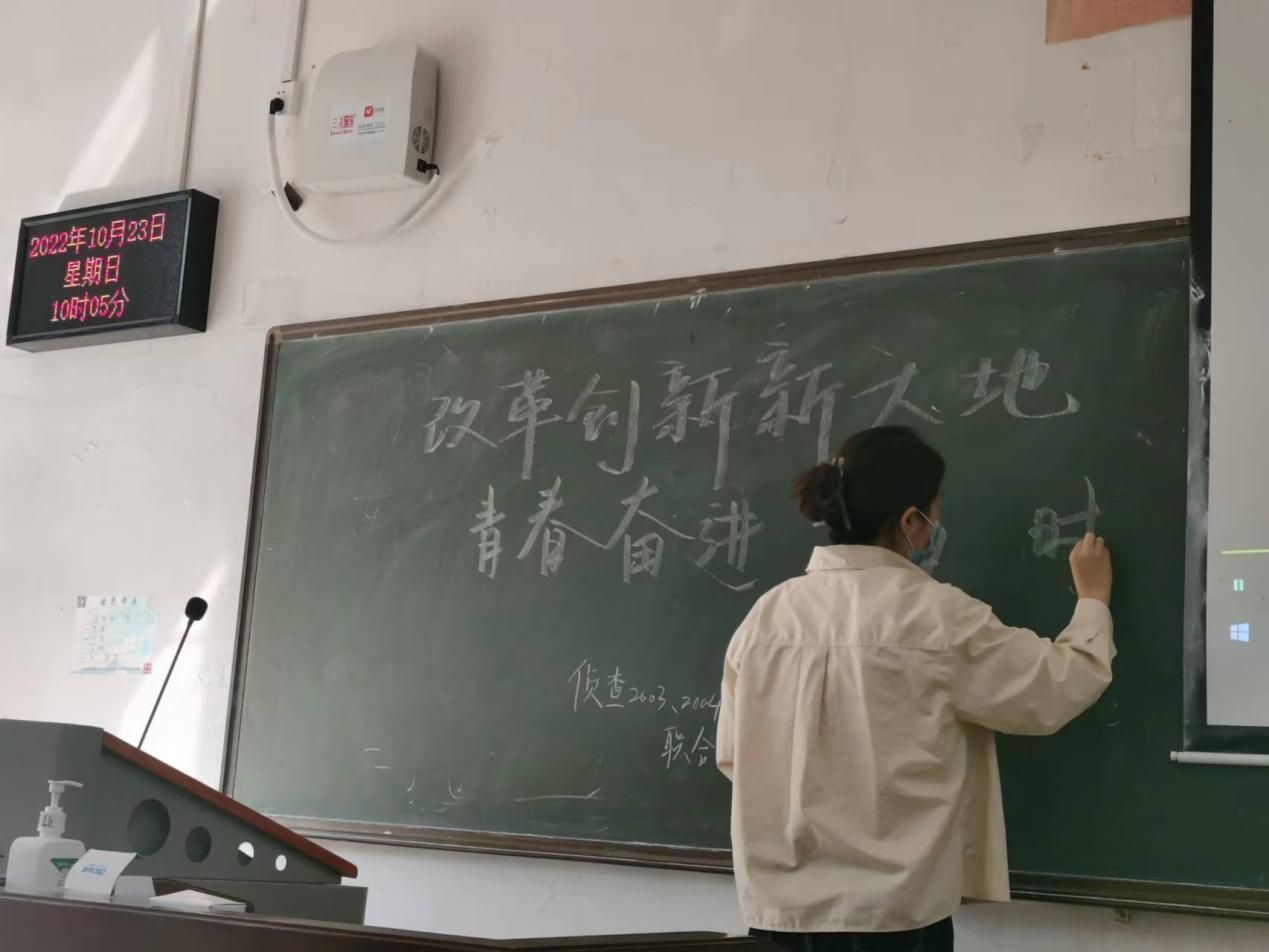 2022年10月23日
星期日
10时05分
改革创新新大地
青春奋进
时
侦查2003、2004
联合